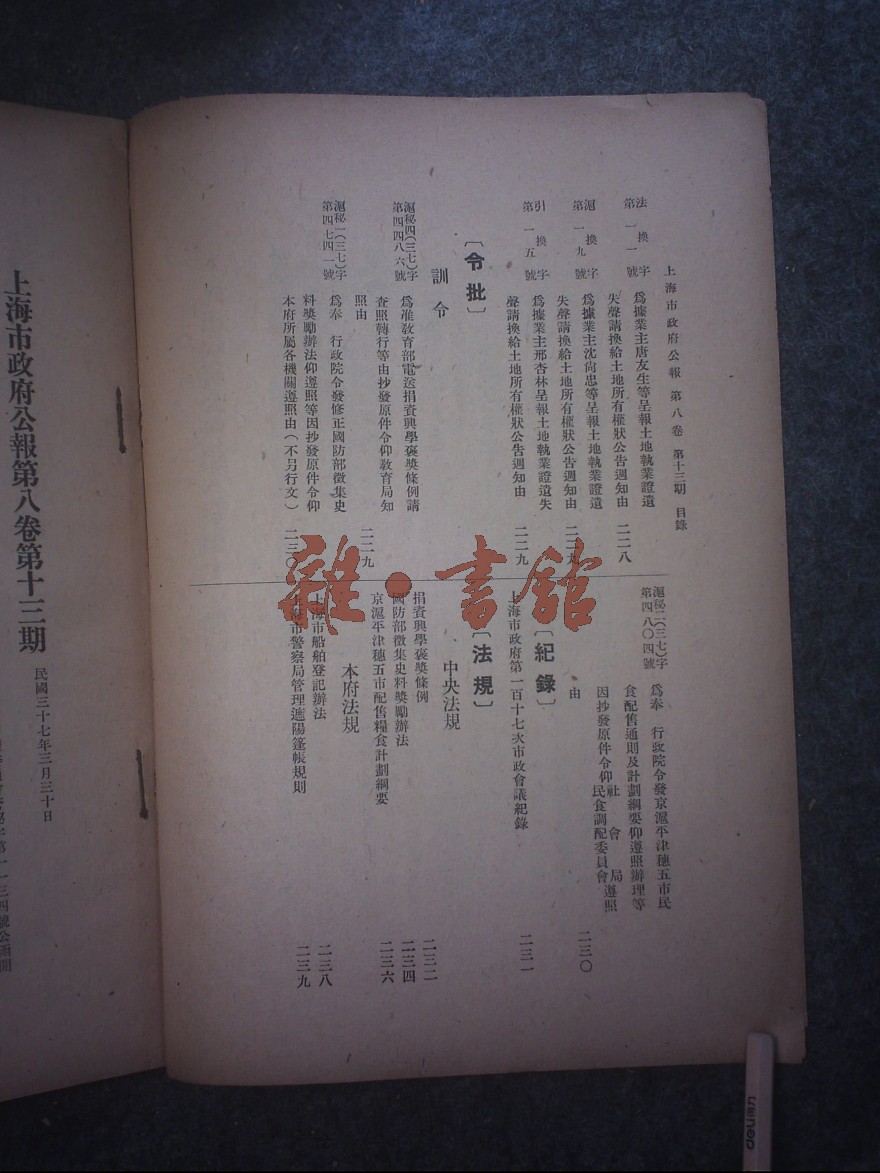 上海市政府公報 第八卷 第十三期 目錄
法換字
第一一號
為據業主唐友生等呈報土地執業證遺
失聲請換給土地所有權狀公告週知由
二二八
滬換字
第一九號
為據業主沈尙忠等呈報土地執業證遺
失聲請換給土地所有權狀公告週知由
二二九
引換字
第一五號
為據業主邢杏林呈報土地執業證遺失
聲請換給土地所有權狀公告週知由
二二九
〔令批〕
訓令
滬秘四(三七)字
第四四八六號
為准敎育部電送捐資興學褒獎條例請
查照轉行等由抄發原件令仰敎育局知
照由
二二九
滬秘一(三七)字
第四七四一號
為奉 行政院令發修正國防部徵集史
料獎勵辦法仰遵照等因抄發原件令仰
本府所屬各機關遵照由(不另行文)
二三〇
滬秘二(三七)字
第四八〇四號
為奉 行政院令發京滬平津穗五市民
食配售通則及計劃綱要仰遵照辦理等
因抄發原件令仰社會局民食調配委員會遵照
由
二三〇
〔紀錄〕
上海市政府第一百十七次市政會議紀錄
二三一
〔法規〕
中央法規
捐資興學褒獎條例
二三二
國防部徵集史料獎勵辦法
二三四
京滬平津穗五市配售糧食計劃綱要
二三六
本府法規
上海市船舶登記辦法
二三八
上海市警察局管理遮陽篷帳規則
二三九
上海市政府公報第八卷第十三期
民國三十七年三月三十日
雜·書館
deli